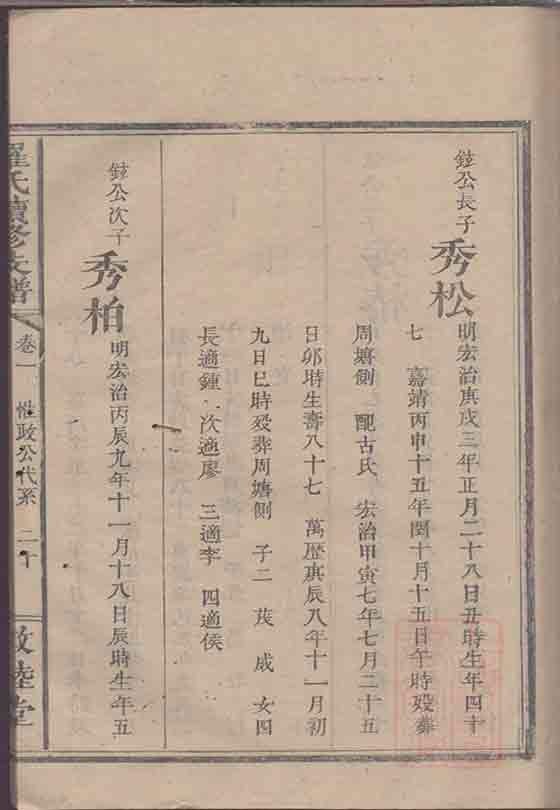 鋕公長子
秀松
明宏治庚戌三年正月二十八日丑時生年四十
七 嘉靖丙申十五年閏十月十五日午時歿葬
周塘側 配古氏 宏治甲寅七年七月二十五
日卯時生壽八十七 萬歷庚辰八年十一月初
九日巳時歿葬周塘側 子二 茂 成 女四
長適鍾 次適廖 三適李 四適侯
鋕公次子
秀柏
明宏治丙辰九年十一月十八日辰時生年五
羅氏續修支譜
卷一
惟政公代系 二十
敦睦堂